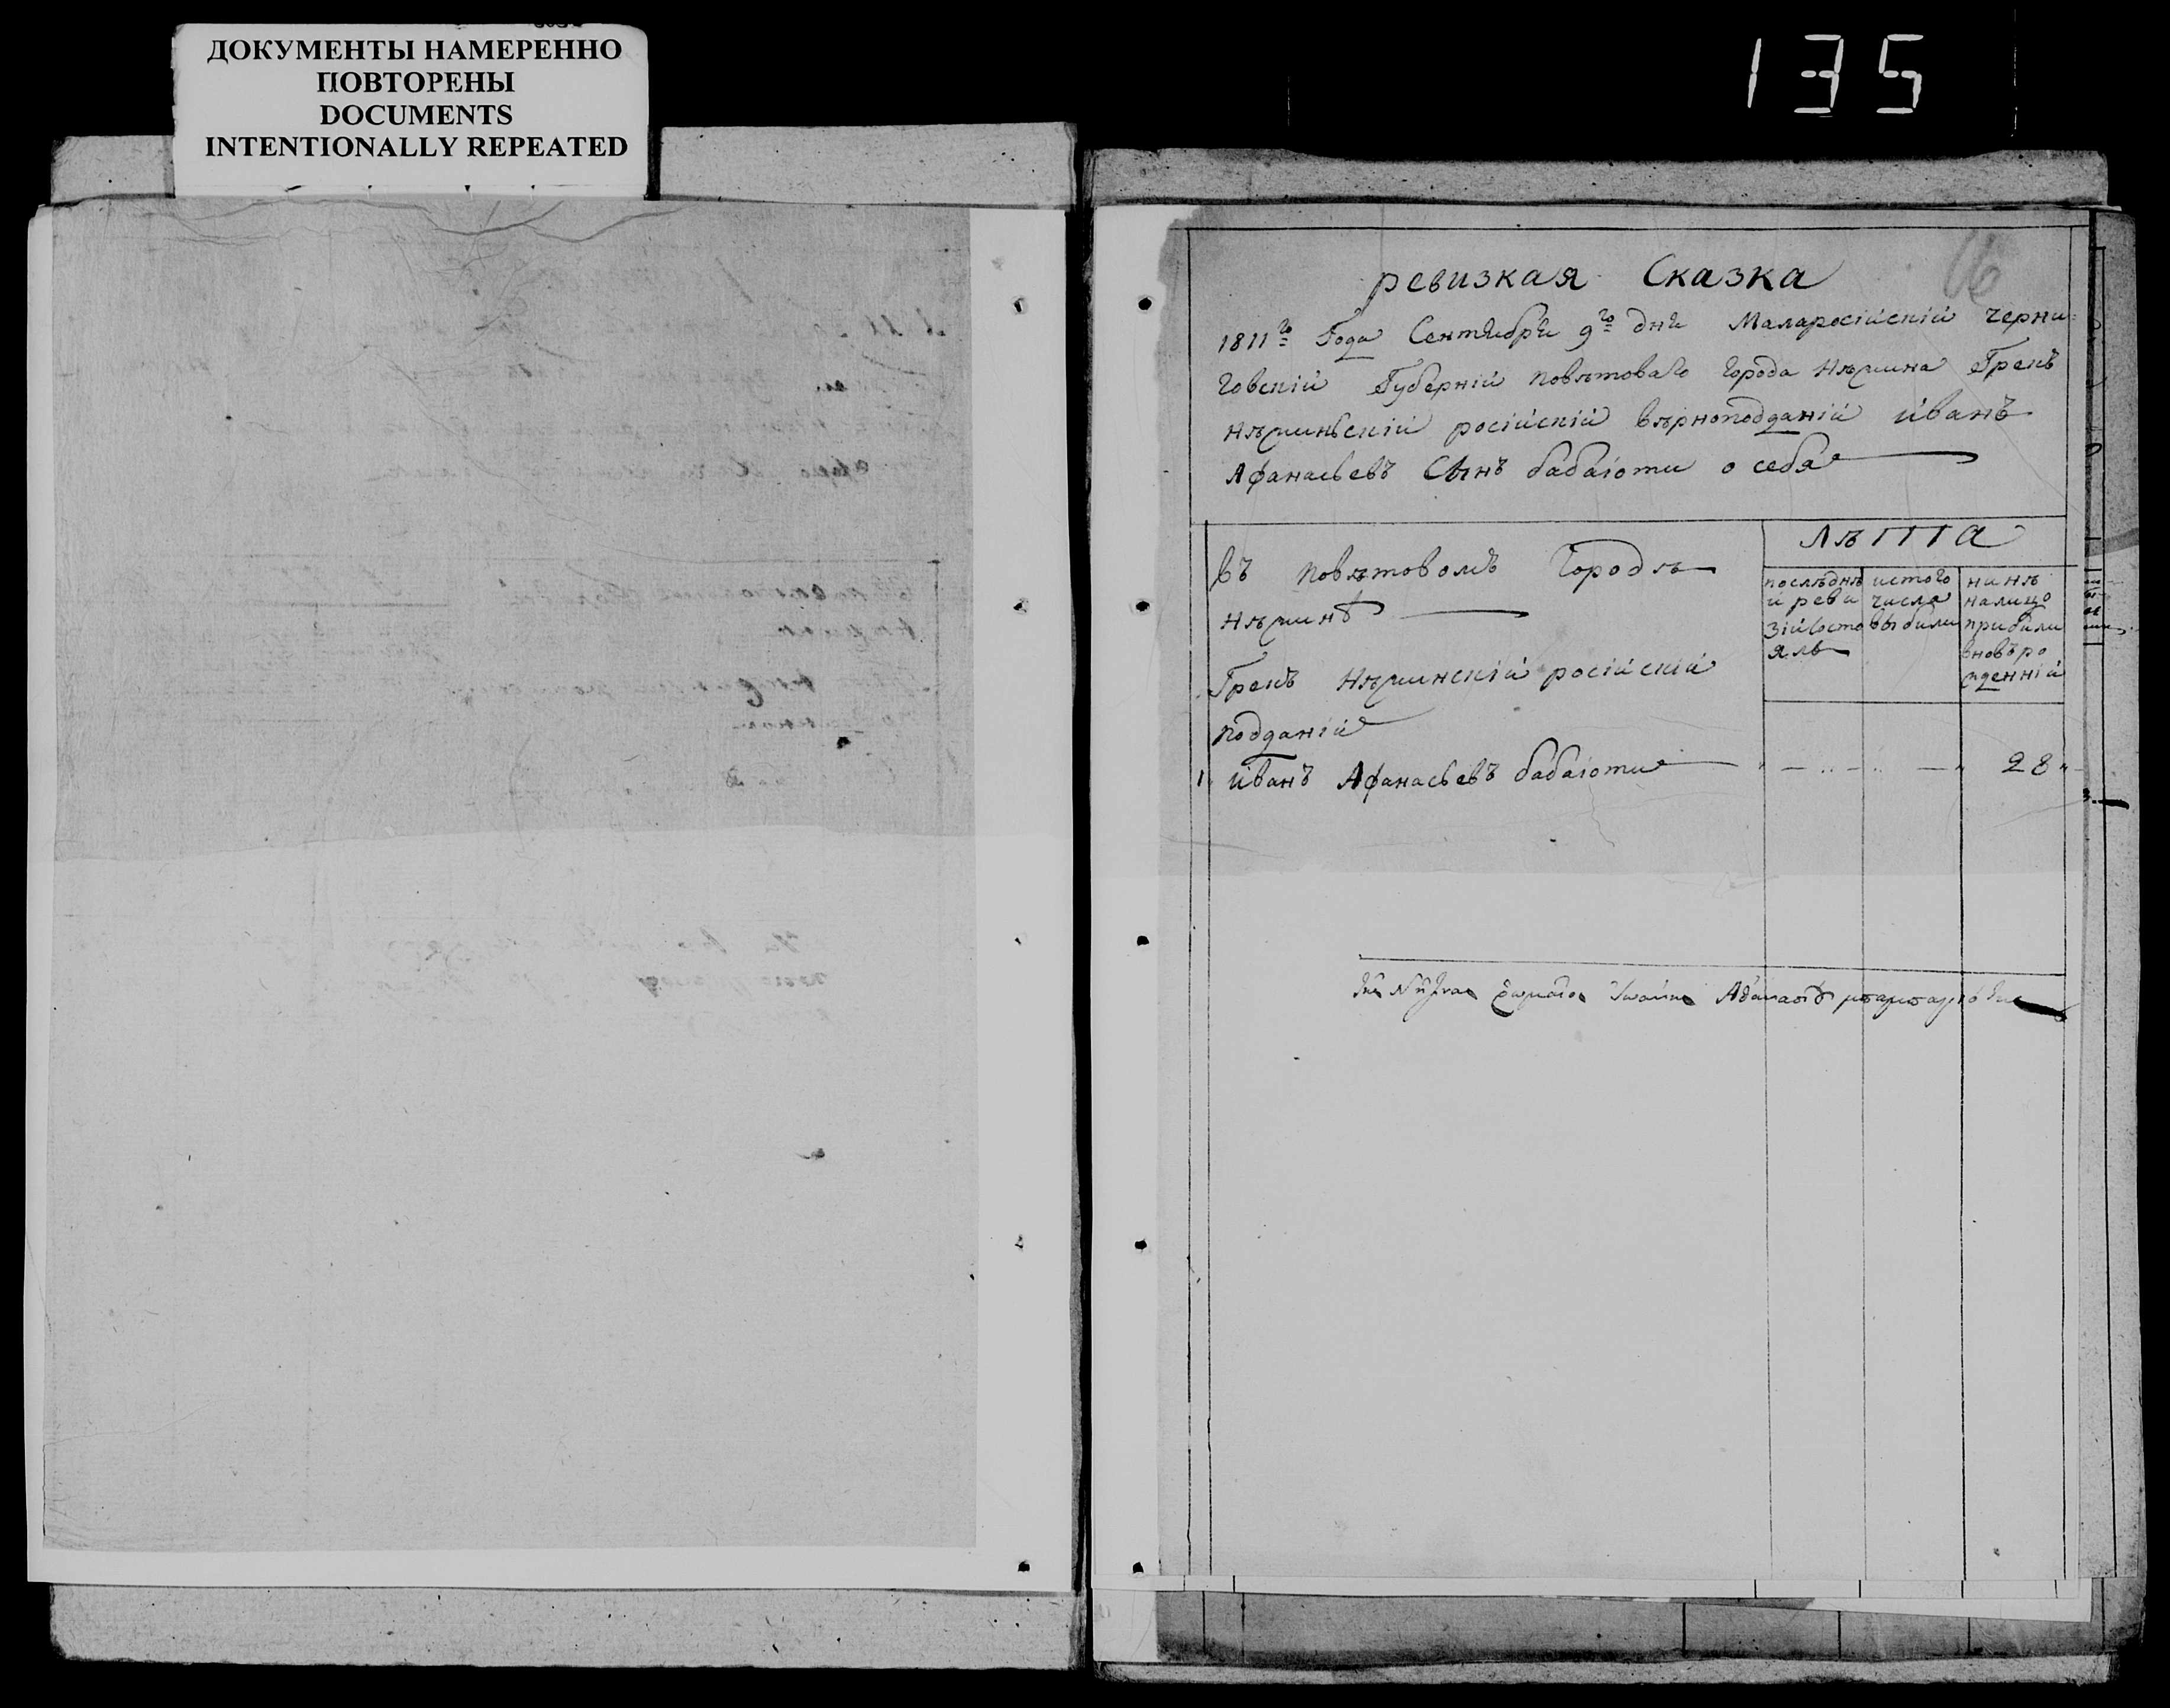 ДОКУМЕНТЫ НАМЕРЕННО
ПОВТОРЕНЫ
DOCUMENTS
INTENTIONALLY REPEATED
135
16
ревизкая Сказка
1811го Года Сентября 9го дня Маларосійскій черни
говскій Губерній повѣтоваго города Нѣжина Грекъ
нѣжиньскій російскій вѣрноподданій иванъ
Афанасьевъ Сынъ бабаіоти о себя
Лѣтта
въ повѣтовомъ Городѣ
нѣжинѣ
послѣднѣ
й реви
зій состо
ялъ
истого
числа
выбили
нинѣ
налицо
прибили
вновъро
жденній
Грекъ Нѣжинскій російскій
подданій
1 иванъ Афанасьевъ бабаіоти 28